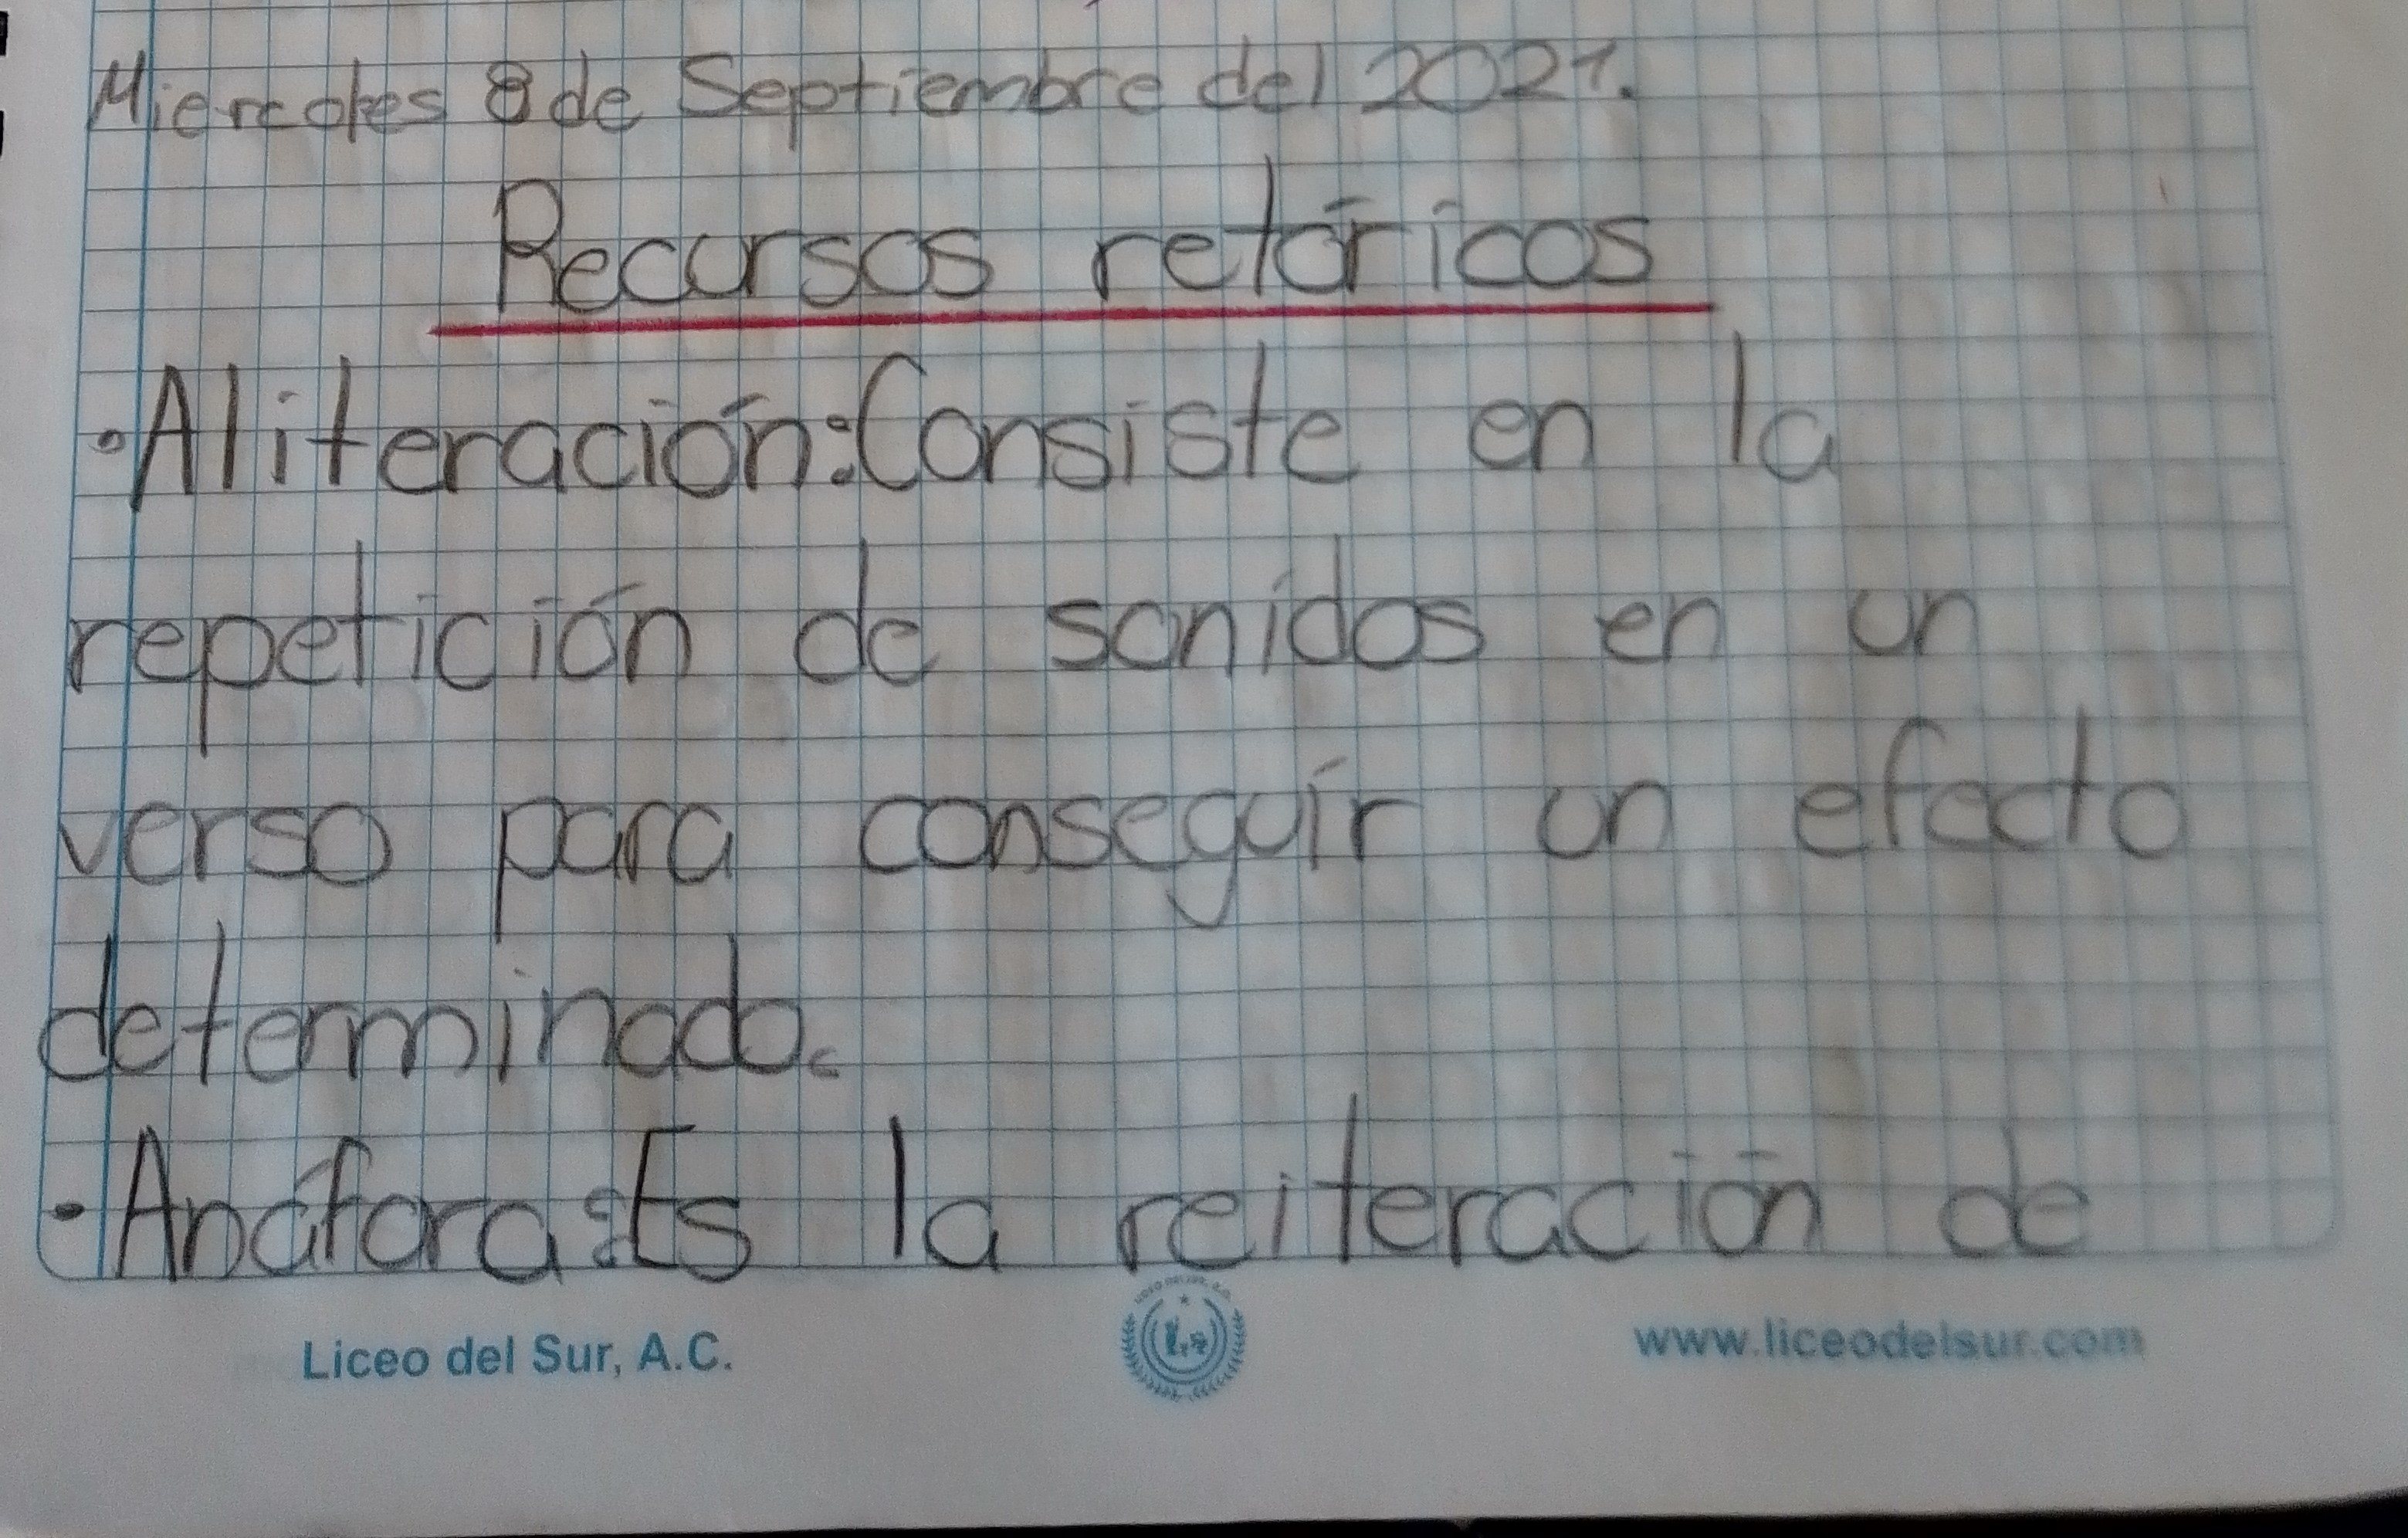 Miercoles 8 de Septiembre del 2021.
Recursos retóricos
•Aliteración:Consiste en la
repetición de sonidos en un
verso para conseguír un efecto
determinado.
•Anáfora:Es la reiteración de
Liceo del Sur, A.C.
www.liceodelsur.com